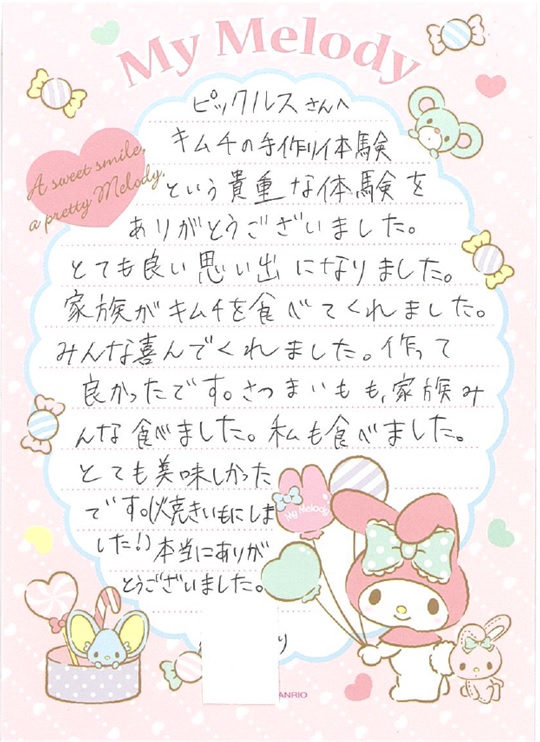 My Melody
A sweet smile,
a pretty Melody.
ピックルスさんへ
キムチの手作り体験
という貴重な体験を
ありがとうございました。
とても良い思い出になりました。
家族がキムチを食べてくれました。
みんな喜んでくれました。作って
良かったです。さつまいもも、家族み
んな食べました。私も食べました。
とても美味しかった
です。(焼きいもにしま
した!)本当にありが
とうございました。
My Melody
より